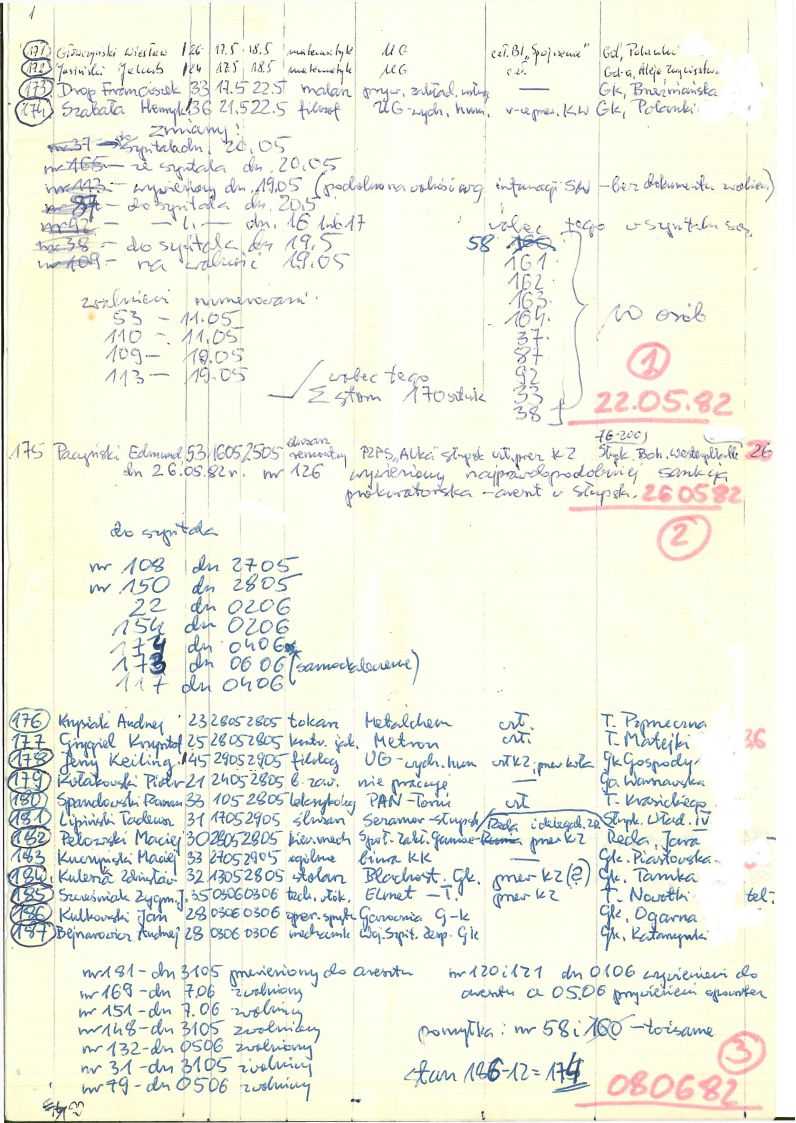 1
171 Główczyński Wiesław 26 17.5 18.5 matematyk UG czł. BI „Spojrzenie” Gd, Polanki
172 Jasiński Jakub 24 17.5 18.5 matematyk UG czł. Gd-a, Aleja Zwycięstwa
173 Drop Franciszek 33 17.5 22.5 malarz pryw. zakład. usług — Gk, Brzeźnieńska
174 Szabała Henryk 36 21.5 22.5 filozof UG-wydz. hum. v-ceprez. KW Gk, Polanki
zmiany:
nr 37 - do szpitala dn. 20.05
nr 165 - ze szpitala dn. 20.05
nr 113 - wywieziony dn. 19.05 (podobno na wolność wg informacji SW - bez dokumentu zwoln.)
nr 87 - do szpitala dn. 20.5
nr 92 - — „ — dn. 16 lub 17
nr 38 - do szpitala dn 19.5
nr 109 - na wolność 19.05
wobec tego w szpitalu są
58 160
161
162
163
164
37
87
92
33
38
10 osób
zwolnieni numerowani:
53 - 11.05
110 - 11.05
109 - 19.05
113 - 19.05
wobec tego
Σ stan 170 osób
1
22.05.82
175 Pacyński Edmund 53 1605 2505 ślusarz remontowy PZPS „Alka” Słupsk czł. prez KZ 76-200 Słupsk, Boh. Westerplatte 26
dn 26.05.82r. nr 126 wywieziony najprawdopodobniej sankcja
prokuratorska - areszt w Słupsk. 26 05 82
2
do szpitala
nr 108 dn 2705
nr 150 dn 2805
22 dn 0206
154 dn 0206
174 dn 0406
173 dn 0606 (samookaleczenie)
117 dn 0406
176 Krysiak Andrzej 23 2805 2805 tokarz Metalchem czł. T.
177 Grygiel Krzysztof 25 2805 2805 kontr. jak. Metron czł. T. Matejki 36
178 Jerzy Keiling 45 2905 2905 filolog UG-wydz. hum czł KZ, prew koła Gk Gospody
179 Kołakowski Piotr 21 2405 2805 b. zaw. nie pracuje — Ga. Warszawska
180 Spandowski Roman 33 105 2805 toksykolog PAN-Toruń czł T. Krasickiego
181 Lipiński Tadeusz 31 1705 2905 ślusarz Seramor-Słupsk Rada i delegat ZR Słupsk, Wład. IV
182 Pelowski Maciej 30 2805 2805 kier. mech Społ. Zakł. prew KZ Reda, Jara
183 Kuczyński Maciej 33 2705 2905 ogólne biura KK — Gk. Piastowska
184 Kulesza Zdzisław 32 1305 2805 stolarz Blachost. Gk. prew KZ (?) Gk, Tamka
185 Sześniak Zygm. J. 35 0306 0306 tech. włók. Elmet - T. prew KZ T. Nowotki tel.
186 Kulkowski Jan 28 0306 0306 oper. sprzętu Garnizon G-k Gk, Ogarna
187 Bejnarowicz Andrzej 28 0306 0306 mechanik Woj. Szpit. Zesp. Gk Gk, Kartuska
nr 181 - dn 3105 przewieziony do aresztu
nr 169 - dn 7.06 zwolniony
nr 151 - dn 7.06 zwolniony
nr 148 - dn 3105 zwolniony
nr 132 - dn 0506 zwolniony
nr 31 - dn 3105 zwolniony
nr 79 - dn 0506 zwolniony
nr 120 i 121 dn 0106 wywiezieni do
aresztu a 05.06 przywiezieni spowrotem
pomyłka: nr 58 i 160 - tożsame
stan 186-12=174
3
080682